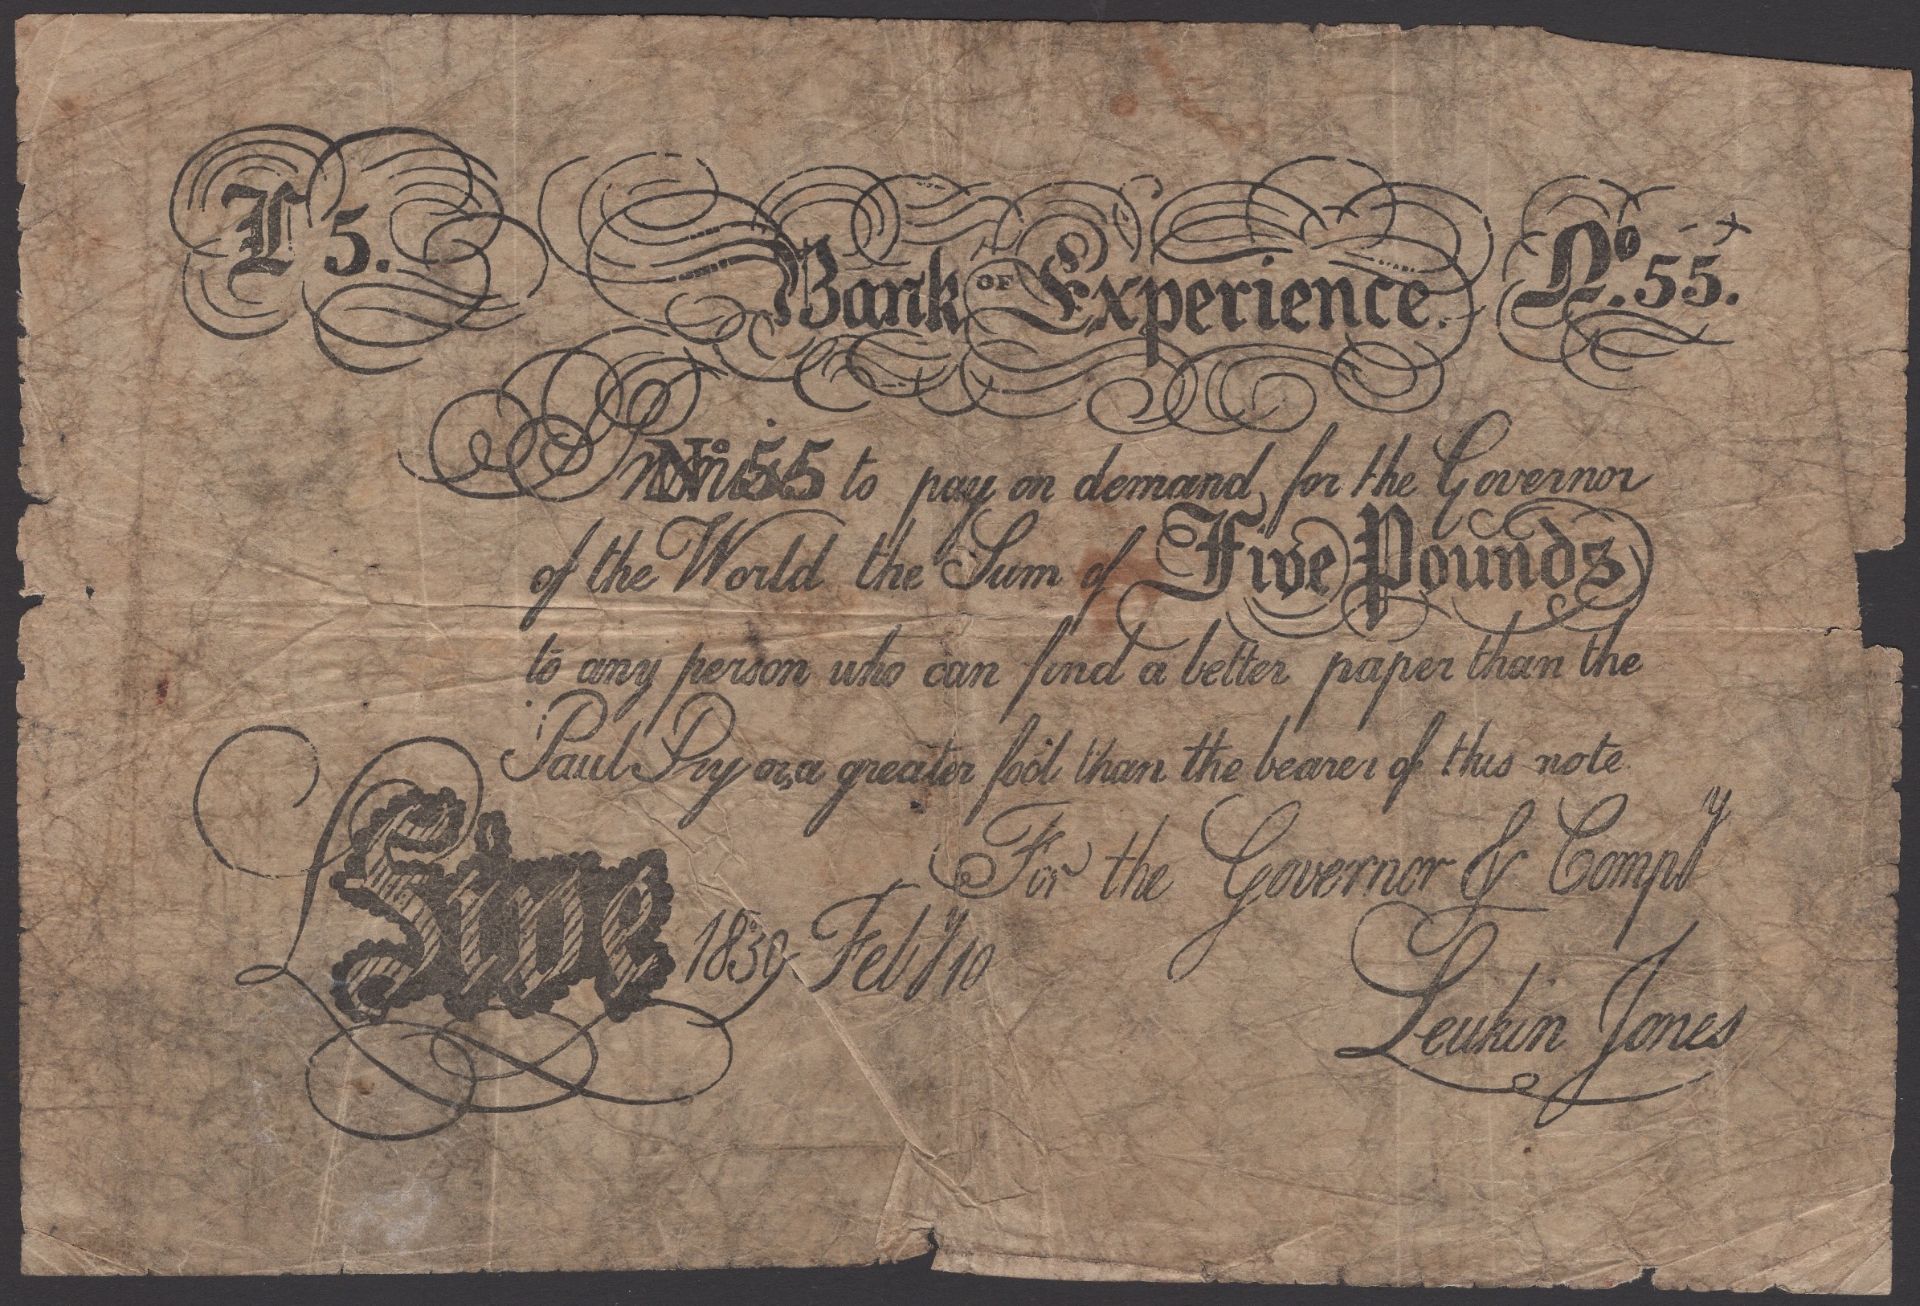 £ 5. Bank OF Experience. No. 55.
No. 55 to pay on demand for the Governor
of the World the Sum of Five Pounds
to any person who can find a better paper than the
Paul Pry or, a greater fool than the bearer of this note
For the Governor & Compy
Five 1830 Feby 10
Leukin Jones